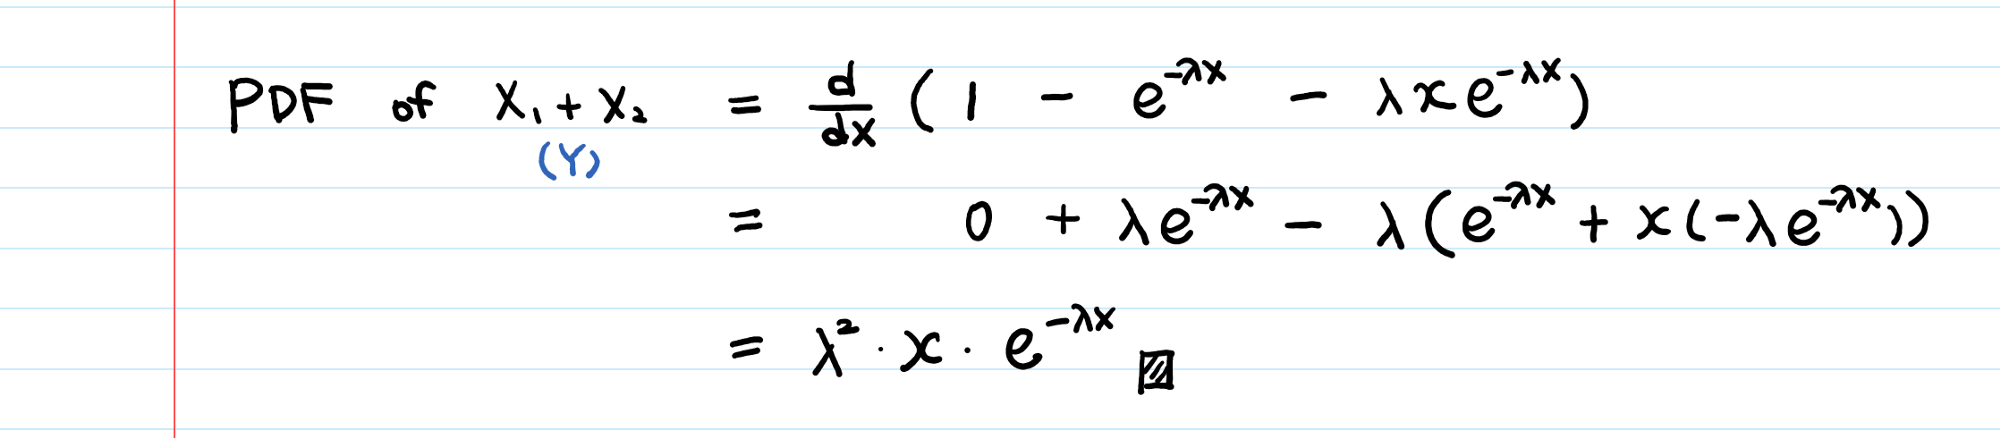 PDF of X₁ + X₂ = d/dx (1 - e^{-λx} - λxe^{-λx})
(Y)
= 0 + λe^{-λx} - λ(e^{-λx} + x(-λe^{-λx}))
= λ² · x · e^{-λx}